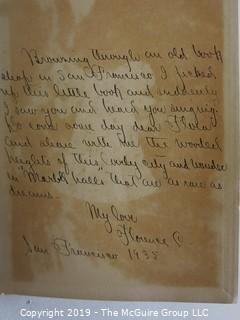 Browsing through an old book
shop in San Francisco I picked
up this little book and suddenly
I saw you and heard you singing.
So come some day dear Flota
and share with me the wooded
heights of this lovely city and wander
in "Marble halls" that are as rare as
dreams.
My love
Florence C
San Francisco 1938
Copyright © 2019 - The McGuire Group, LLC